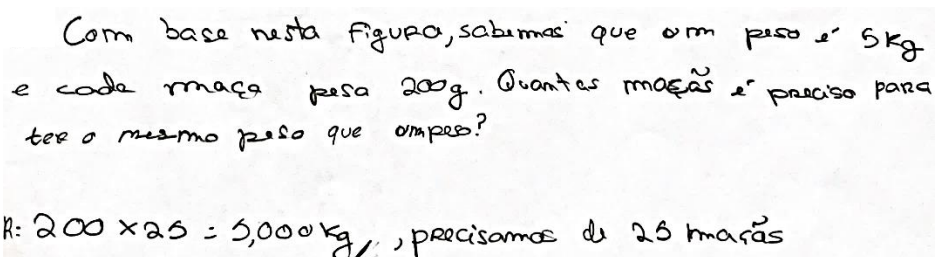 Com base nesta figura, sabemos que um peso é 5kg
e cada maça pesa 200g. Quantas maçãs é preciso para
ter o mesmo peso que um peso?
R: 200 x 25 = 5,000 kg, precisamos de 25 maçãs